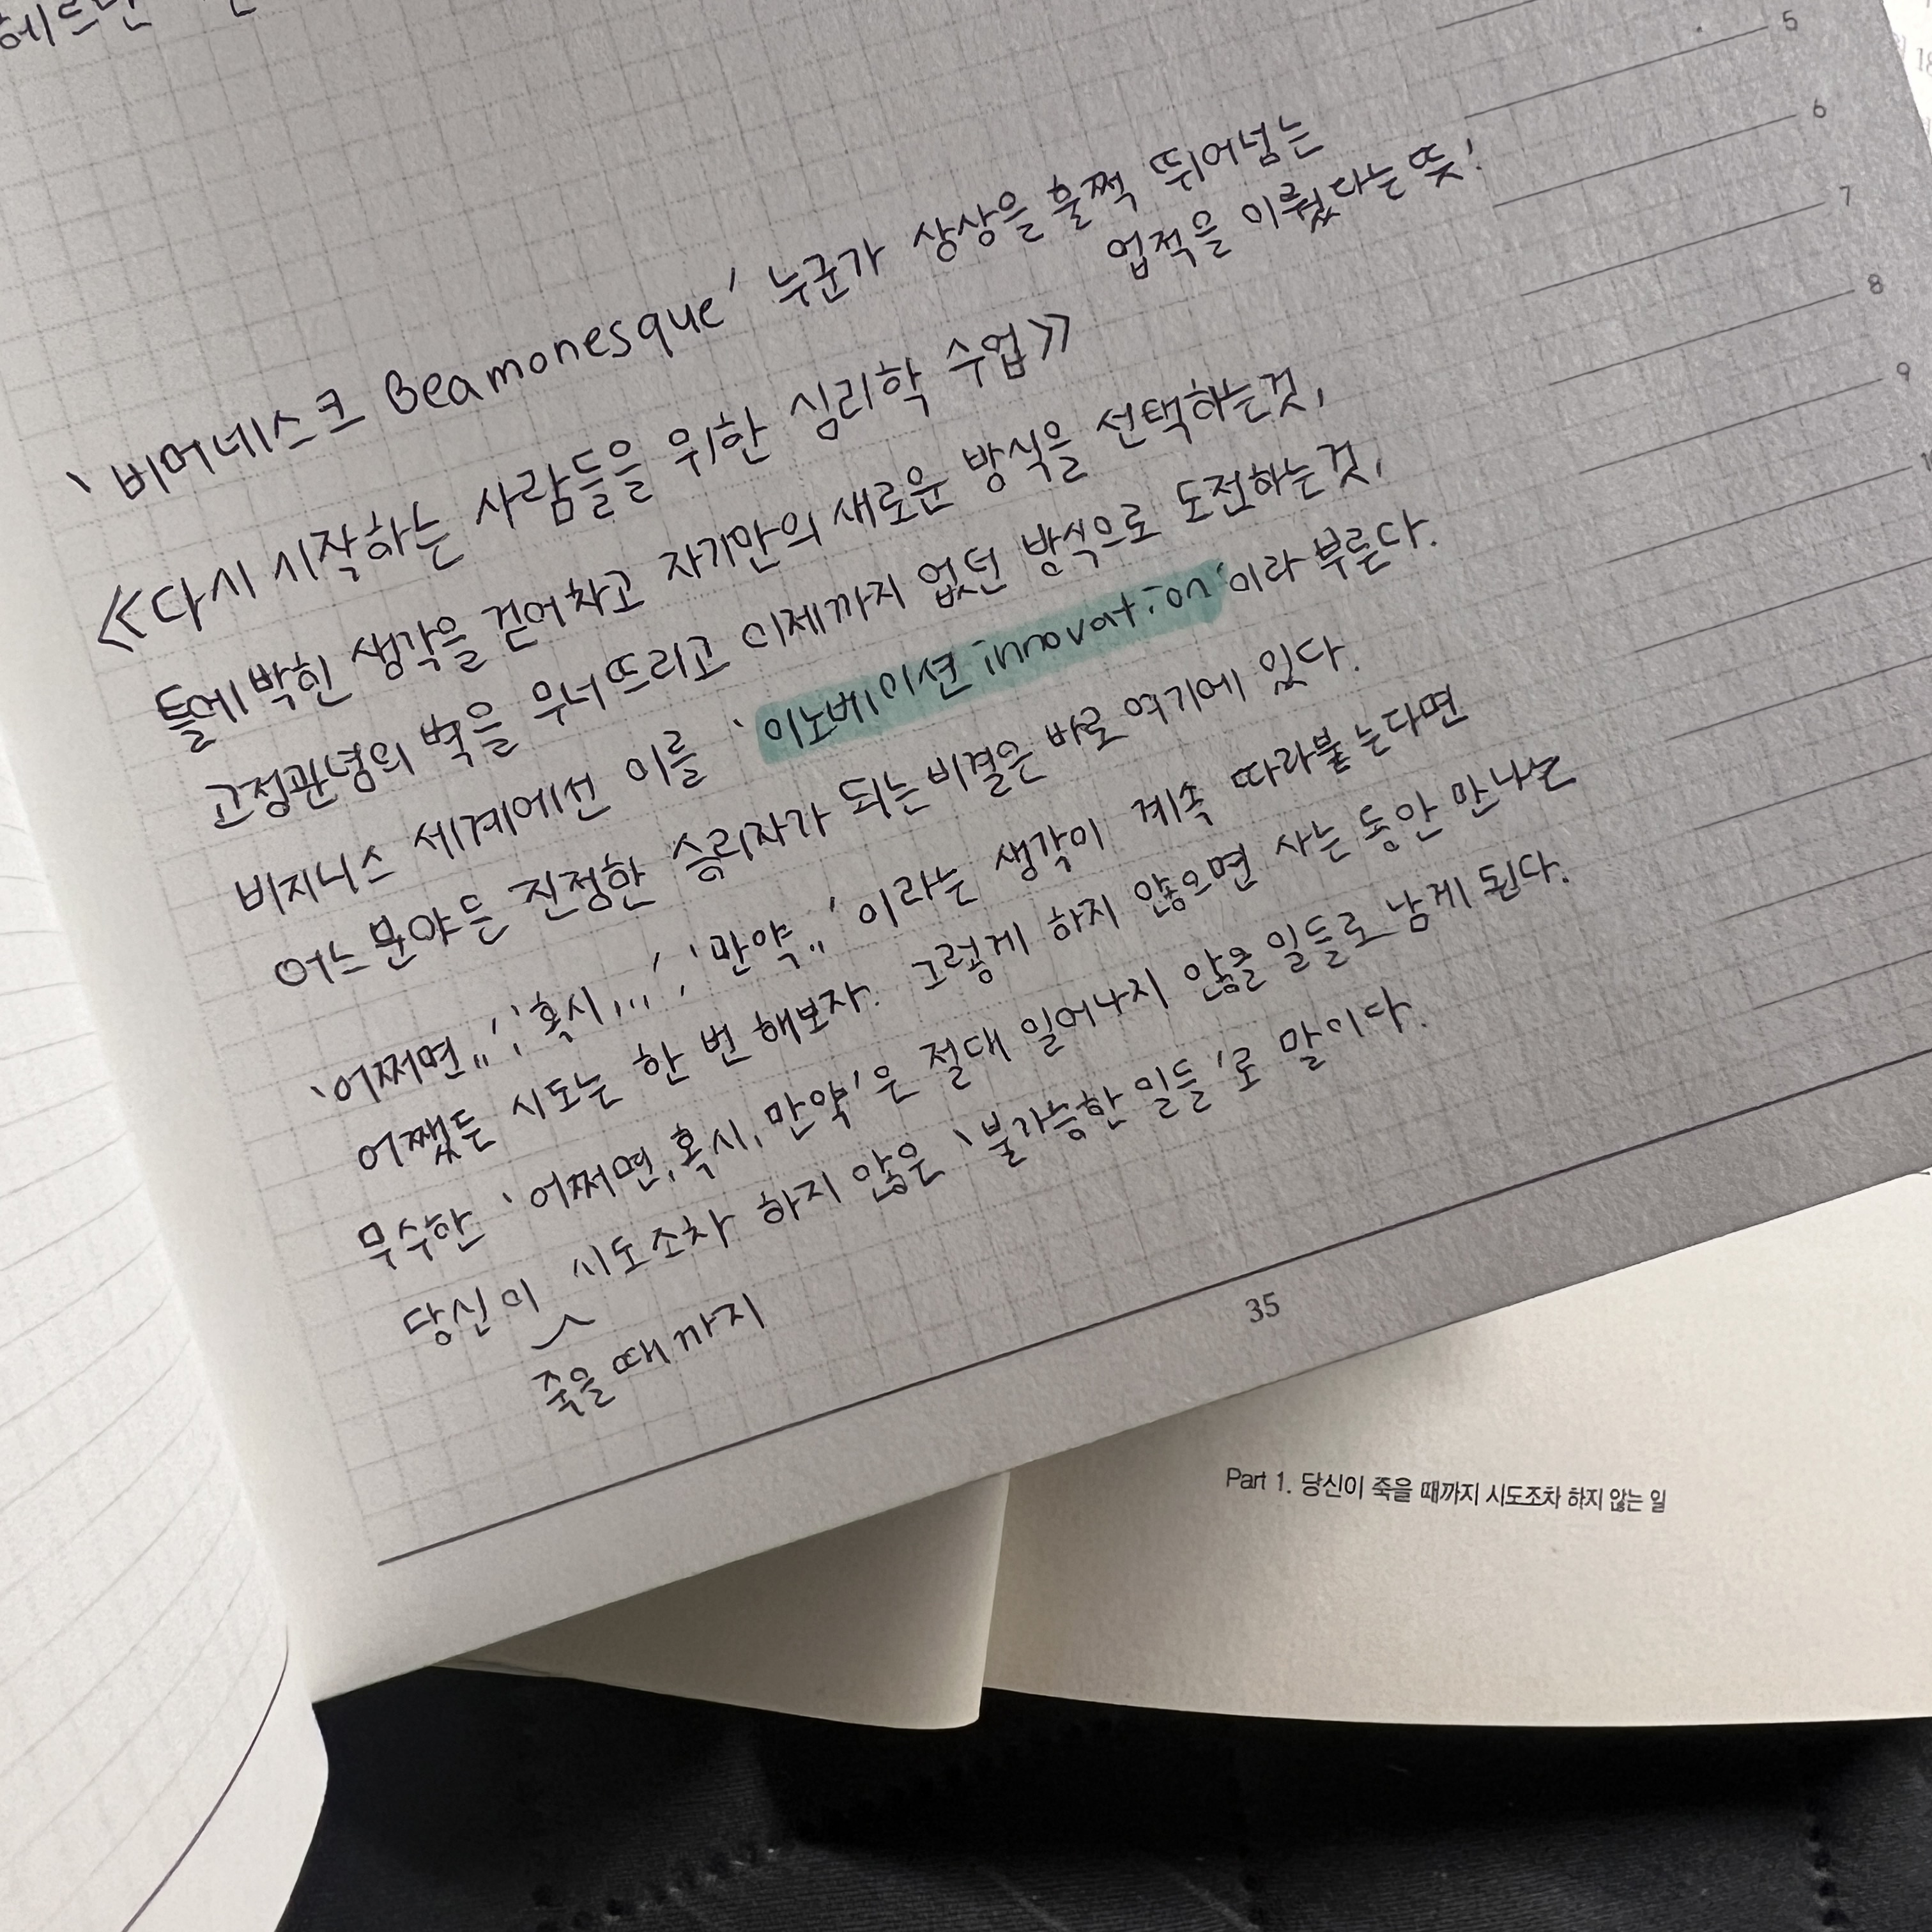 5
6
7
8
9
'비머네스크 Beamonesque' 누군가 상상을 훌쩍 뛰어넘는
업적을 이뤘다는 뜻!
≪다시 시작하는 사람들을 위한 심리학 수업≫
틀에 박힌 생각을 걷어차고 자기만의 새로운 방식을 선택하는것,
고정관념의 벽을 무너뜨리고 이제까지 없던 방식으로 도전하는것,
비지니스 세계에선 이를 '이노베이션 innovation'이라 부른다.
어느 분야든 진정한 승리자가 되는 비결은 바로 여기에 있다.
'어쩌면..', '혹시...', '만약..' 이라는 생각이 계속 따라붙는다면
어쨌든 시도는 한 번 해보자. 그렇게 하지 않으면 사는 동안 만나는
무수한 '어쩌면, 혹시, 만약'은 절대 일어나지 않을 일들로 남게 된다.
당신이 시도조차 하지 않은 '불가능한 일들'로 말이다.
죽을 때까지
35
Part 1. 당신이 죽을 때까지 시도조차 하지 않는 일